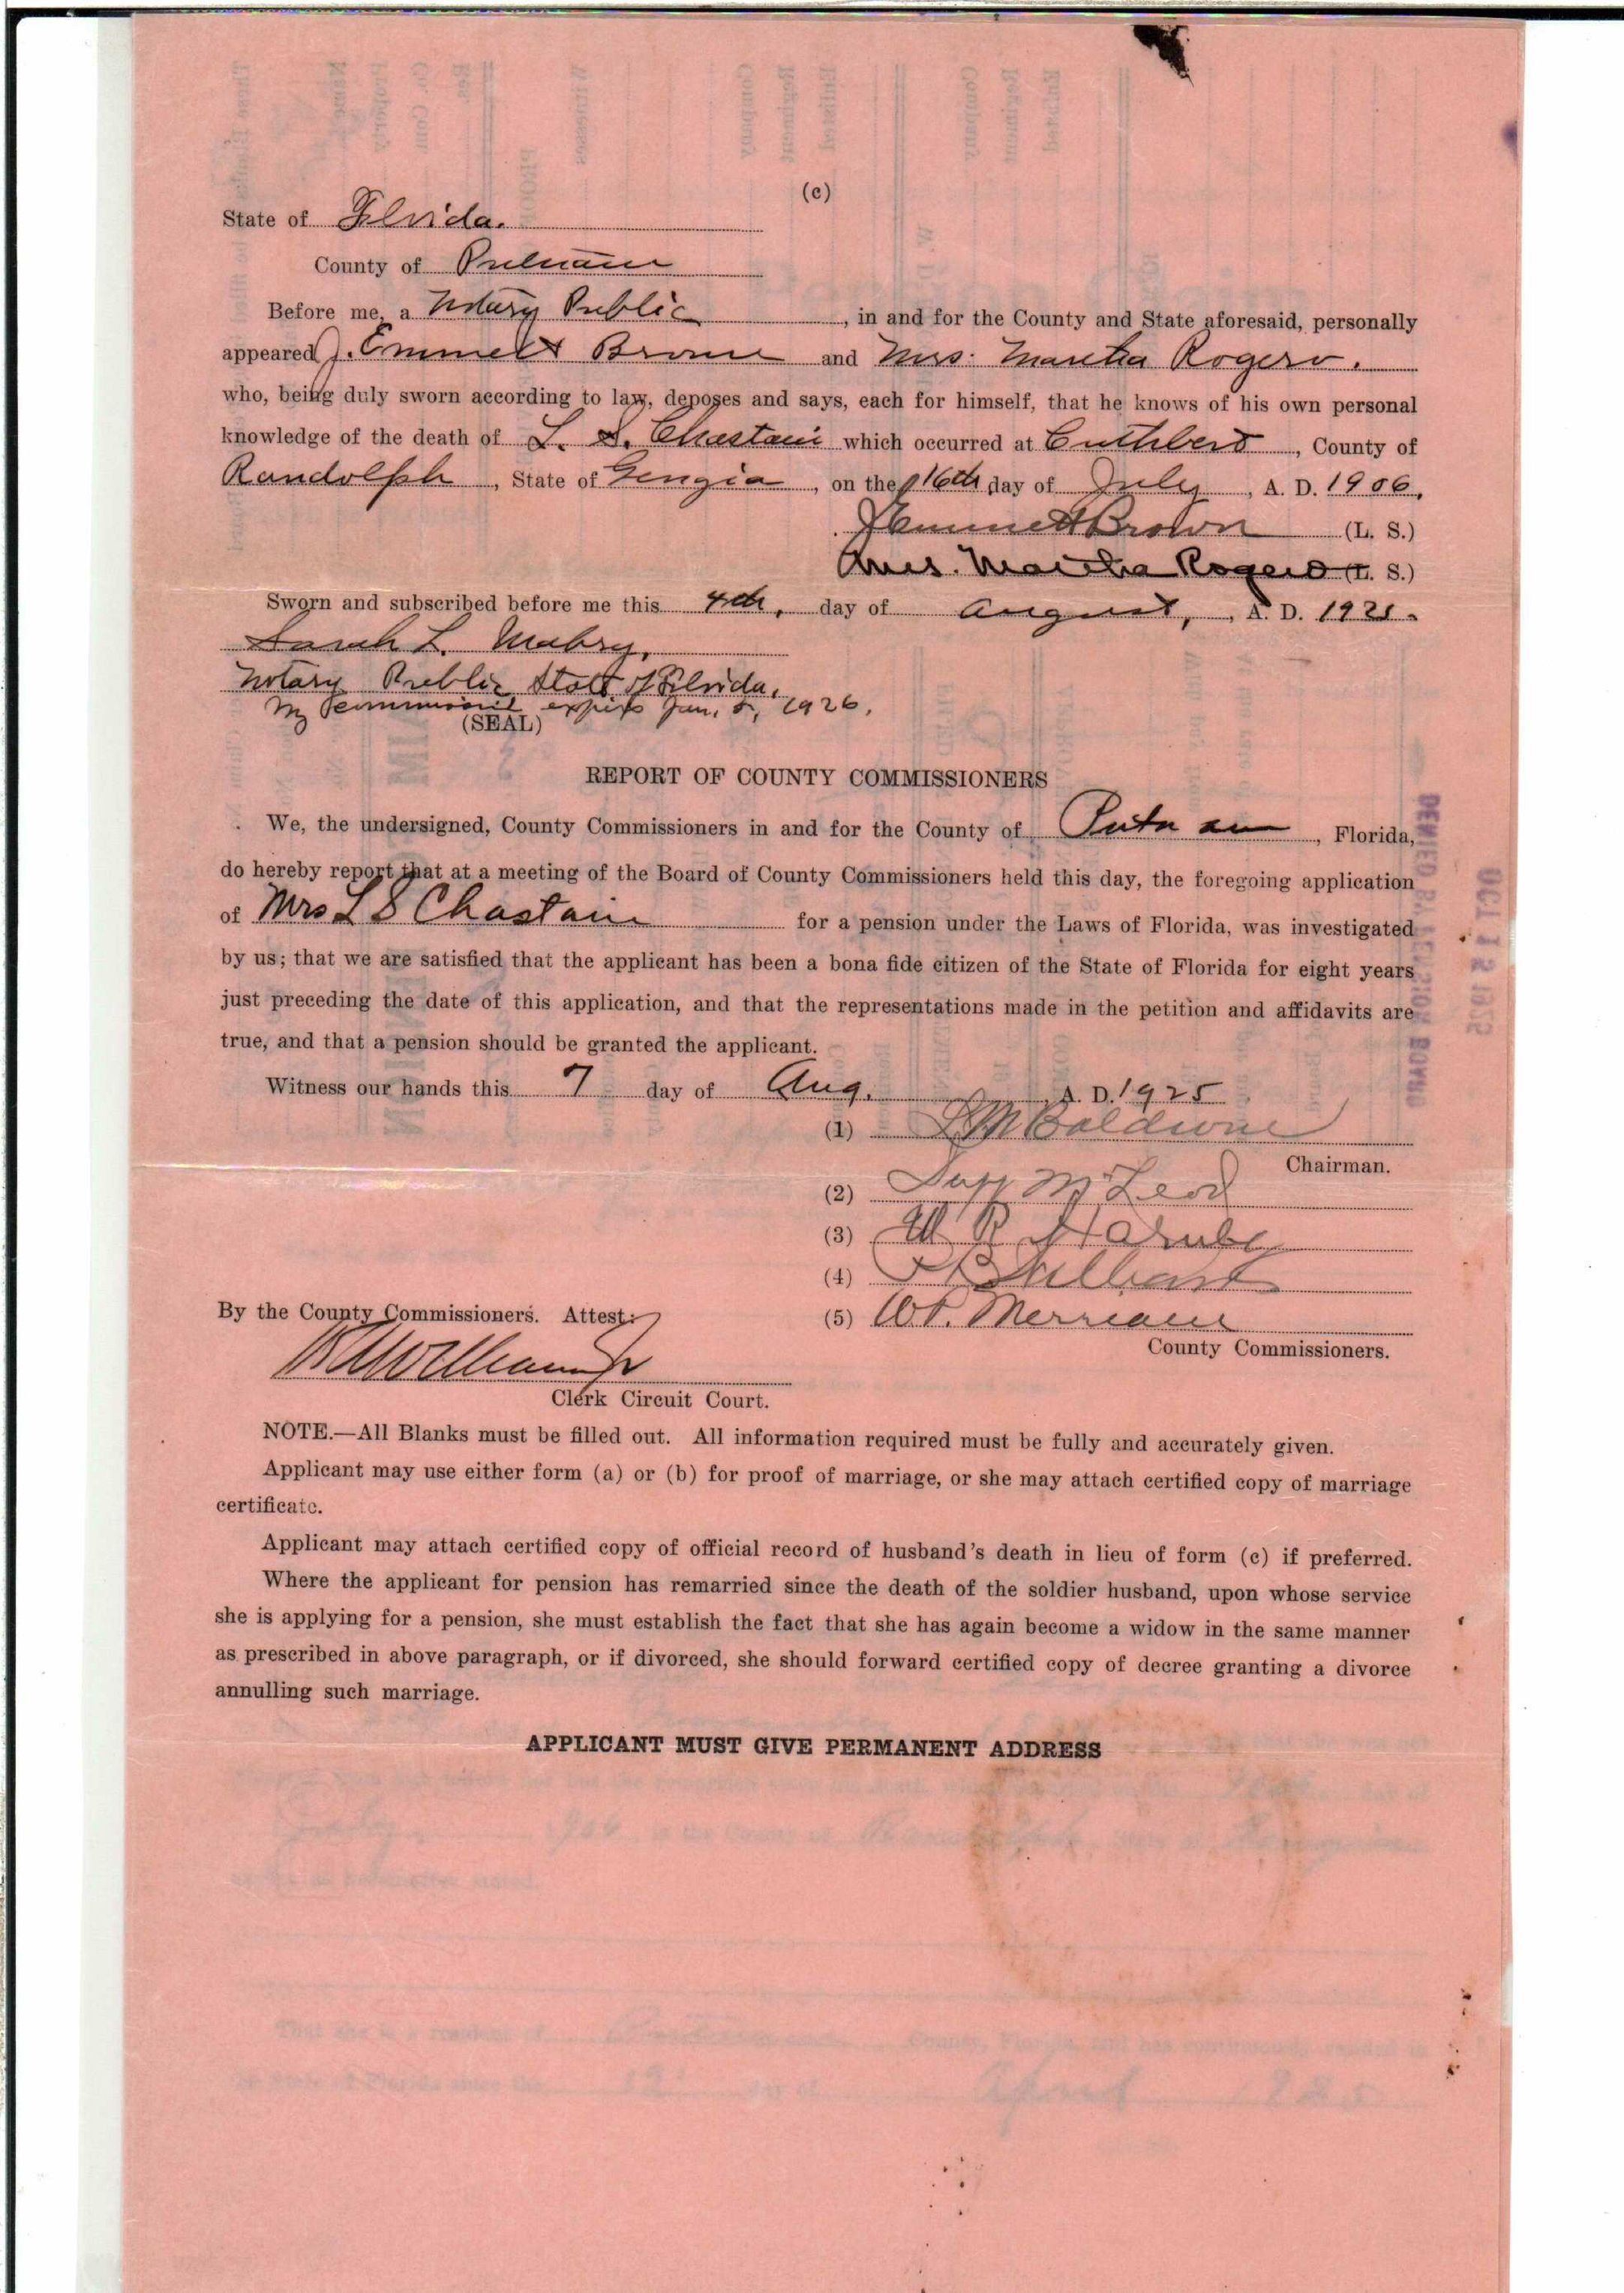 (c)
State of Florida.
County of Putnam
Before me, a Notary Public, in and for the County and State aforesaid, personally
appeared J. Emmett Brown and Mrs. Martha Rogero.
who, being duly sworn according to law, deposes and says, each for himself, that he knows of his own personal
knowledge of the death of L. S. Chastain which occurred at Cuthbert, County of
Randolph, State of Georgia, on the 16th day of July, A. D. 1906.
J Emmett Brown (L. S.)
Mrs. Martha Rogero (L. S.)
Sworn and subscribed before me this 4th, day of August, A. D. 1925.
Sarah L. Mabry,
Notary Public State of Florida,
My commission expires Jan. 5, 1926.
(SEAL)
REPORT OF COUNTY COMMISSIONERS
We, the undersigned, County Commissioners in and for the County of Putnam, Florida,
do hereby report that at a meeting of the Board of County Commissioners held this day, the foregoing application
of Mrs L S Chastain for a pension under the Laws of Florida, was investigated
by us; that we are satisfied that the applicant has been a bona fide citizen of the State of Florida for eight years
just preceding the date of this application, and that the representations made in the petition and affidavits are
true, and that a pension should be granted the applicant.
Witness our hands this 7 day of Aug. A. D. 1925
(1) L M Baldwin
Chairman.
(2) McLeod
(3) W R
(4)
(5) W. P. Merriam
County Commissioners.
By the County Commissioners. Attest:
Clerk Circuit Court.
NOTE.—All Blanks must be filled out. All information required must be fully and accurately given.
Applicant may use either form (a) or (b) for proof of marriage, or she may attach certified copy of marriage
certificate.
Applicant may attach certified copy of official record of husband's death in lieu of form (c) if preferred.
Where the applicant for pension has remarried since the death of the soldier husband, upon whose service
she is applying for a pension, she must establish the fact that she has again become a widow in the same manner
as prescribed in above paragraph, or if divorced, she should forward certified copy of decree granting a divorce
annulling such marriage.
APPLICANT MUST GIVE PERMANENT ADDRESS
DENIED BY PENSION BOARD
OCT 15 1925